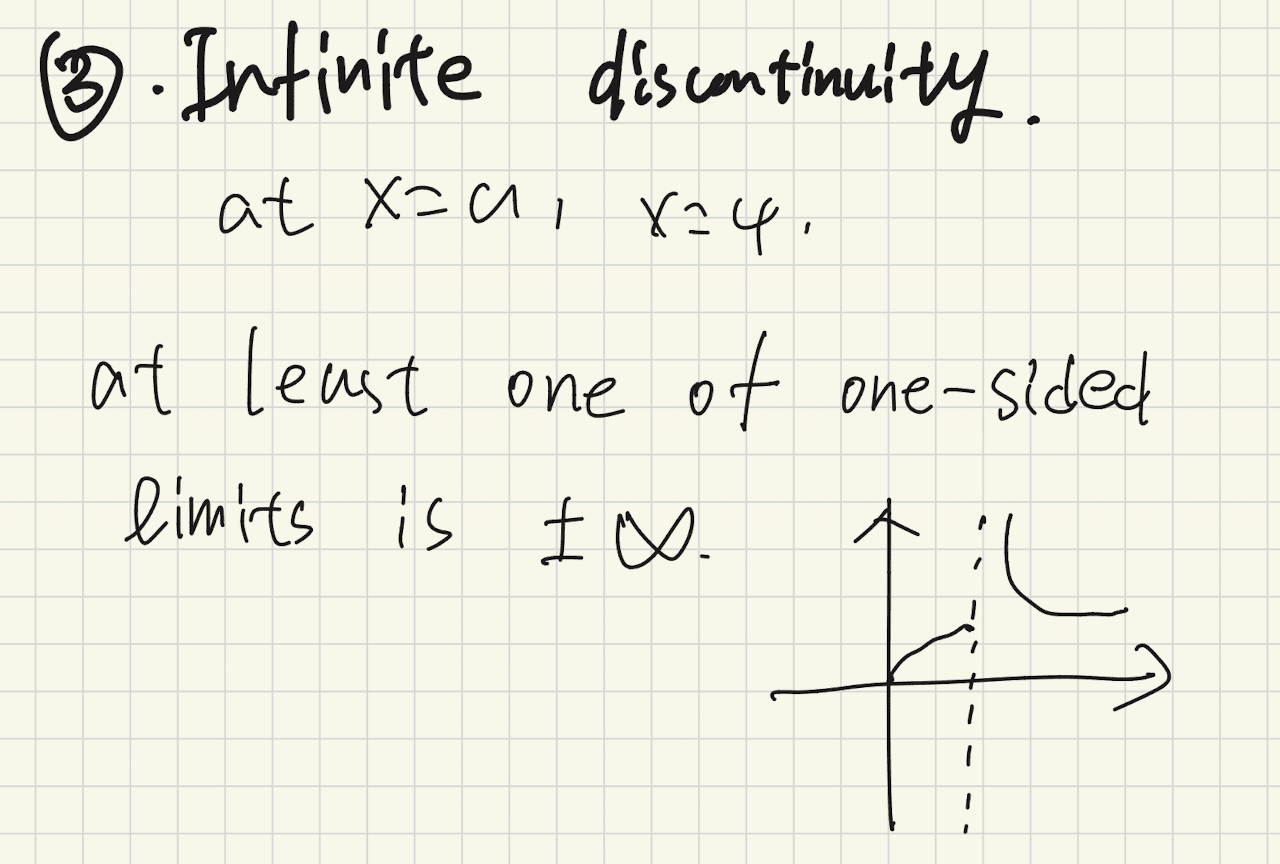 ③. Infinite discontinuity.
at x=a, x=4.
at least one of one-sided
limits is ±∞.